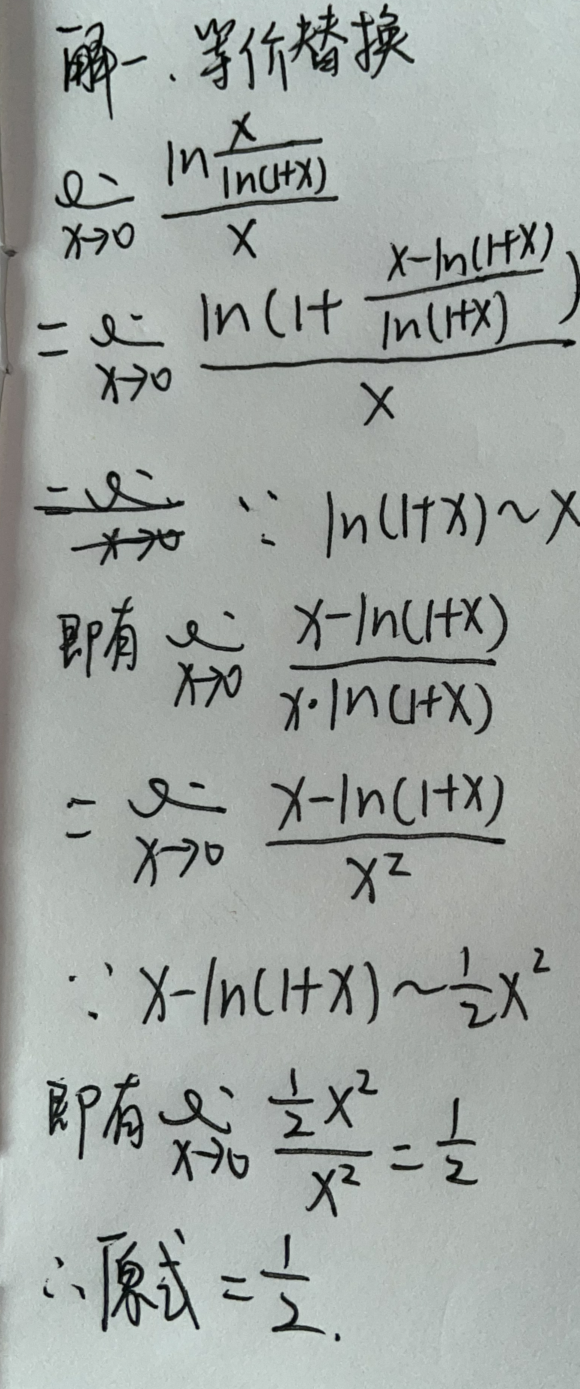 解一、等价替换
lim x→0 ln(x/ln(1+x))/x
= lim x→0 ln(1+(x-ln(1+x))/ln(1+x))/x
= lim x→0 ∵ ln(1+x)~x
即有 lim x→0 (x-ln(1+x))/(x·ln(1+x))
= lim x→0 (x-ln(1+x))/x²
∵ x-ln(1+x)~½x²
即有 lim x→0 ½x²/x² = ½
∴原式=½.